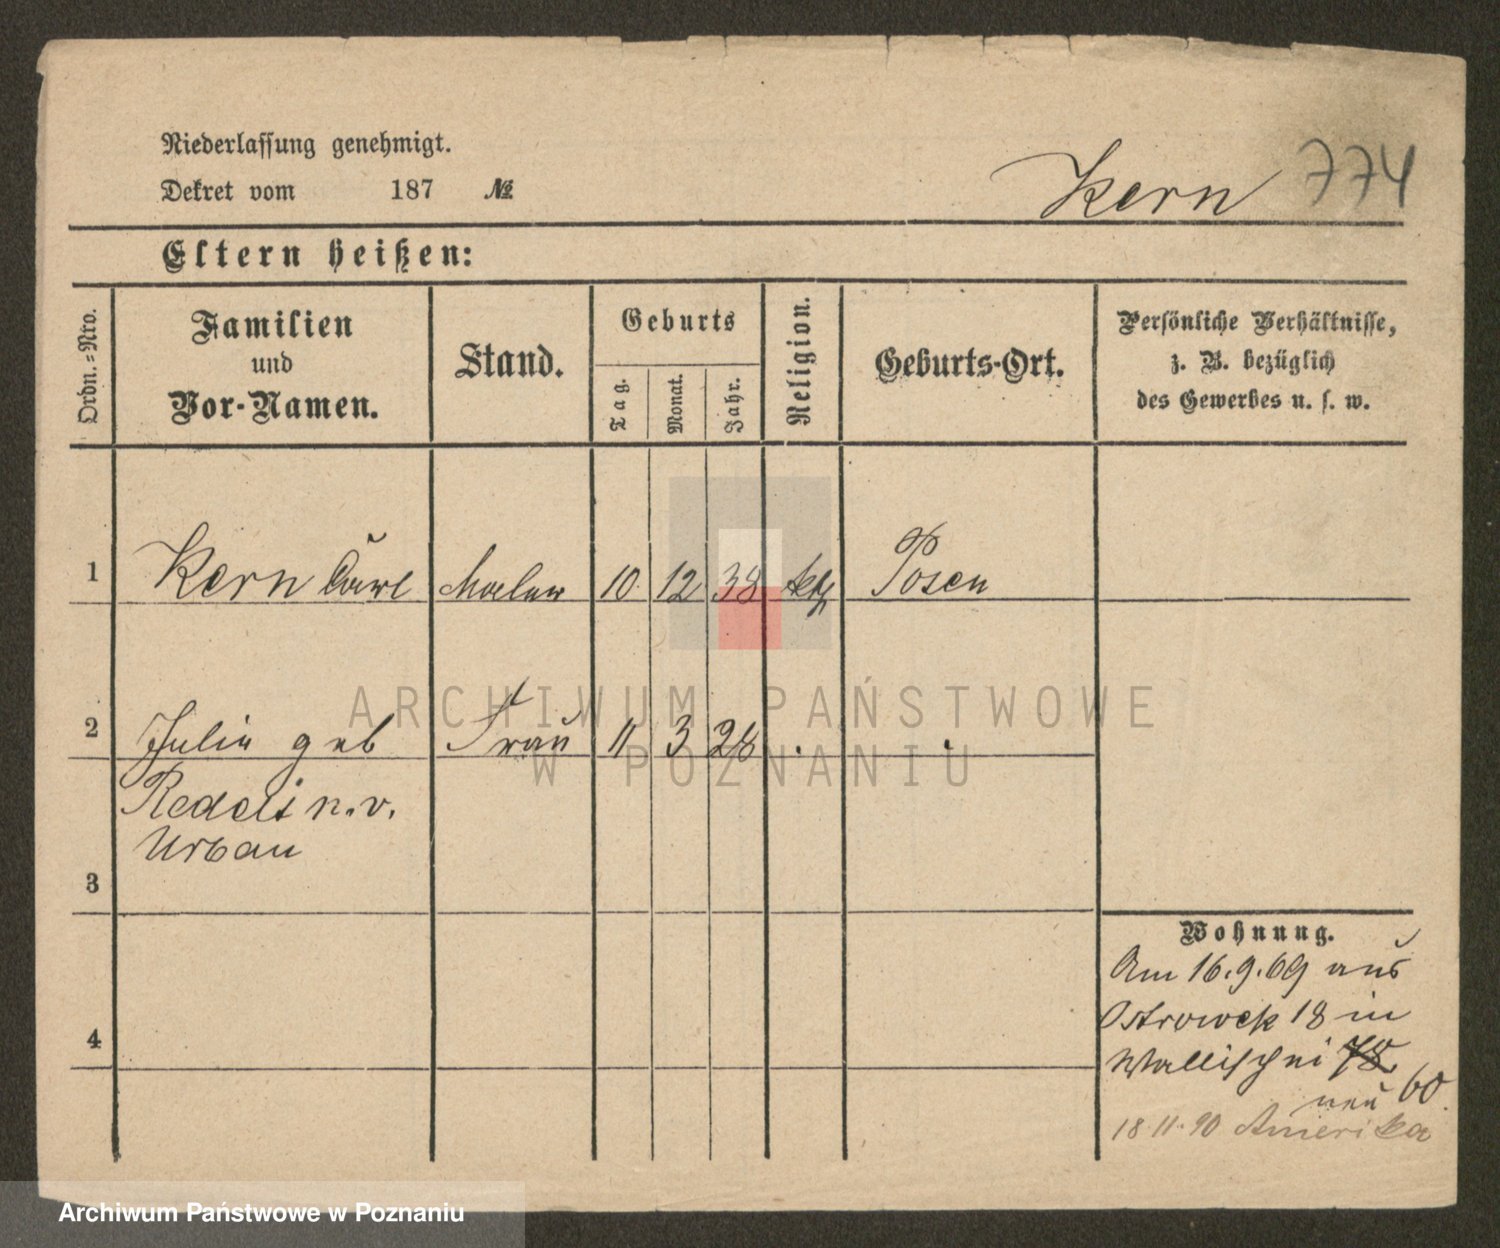 Niederlassung genehmigt.
Dekret vom 187 №
Kern 774
Eltern heißen:
Ordn.=Nro.
Familien
und
Vor-Namen.
Stand.
Geburts
Tag.
Monat.
Jahr.
Religion.
Geburts-Ort.
Persönliche Verhältnisse,
z. B. bezüglich
des Gewerbes u. s. w.
1 Kern Carl Maler 10 12 38 kth Posen
2 Julie geb Frau 11 3 28 . .
n. v.
Urban
3
4
Wohnung.
Am 16.9.69 aus
Ostrowek 18 in
Wallischei 78
neu 60.
18.11.90 Amerika
ARCHIWUM PAŃSTWOWE
W POZNANIU
Archiwum Państwowe w Poznaniu